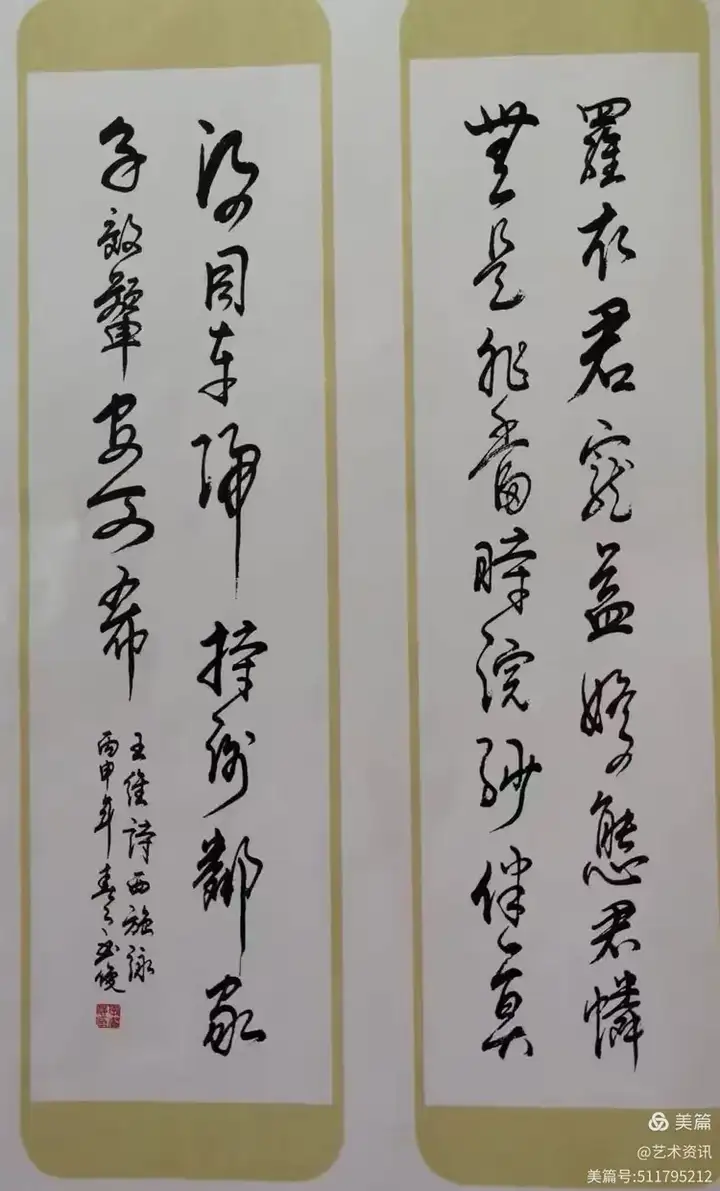 羅衣君寵益嬌態君憐
無是非當時浣紗伴莫
得同車歸持謝鄰家
子效顰安可希
王維詩西施詠
丙申年春
美篇
@艺术资讯
美篇号:511795212